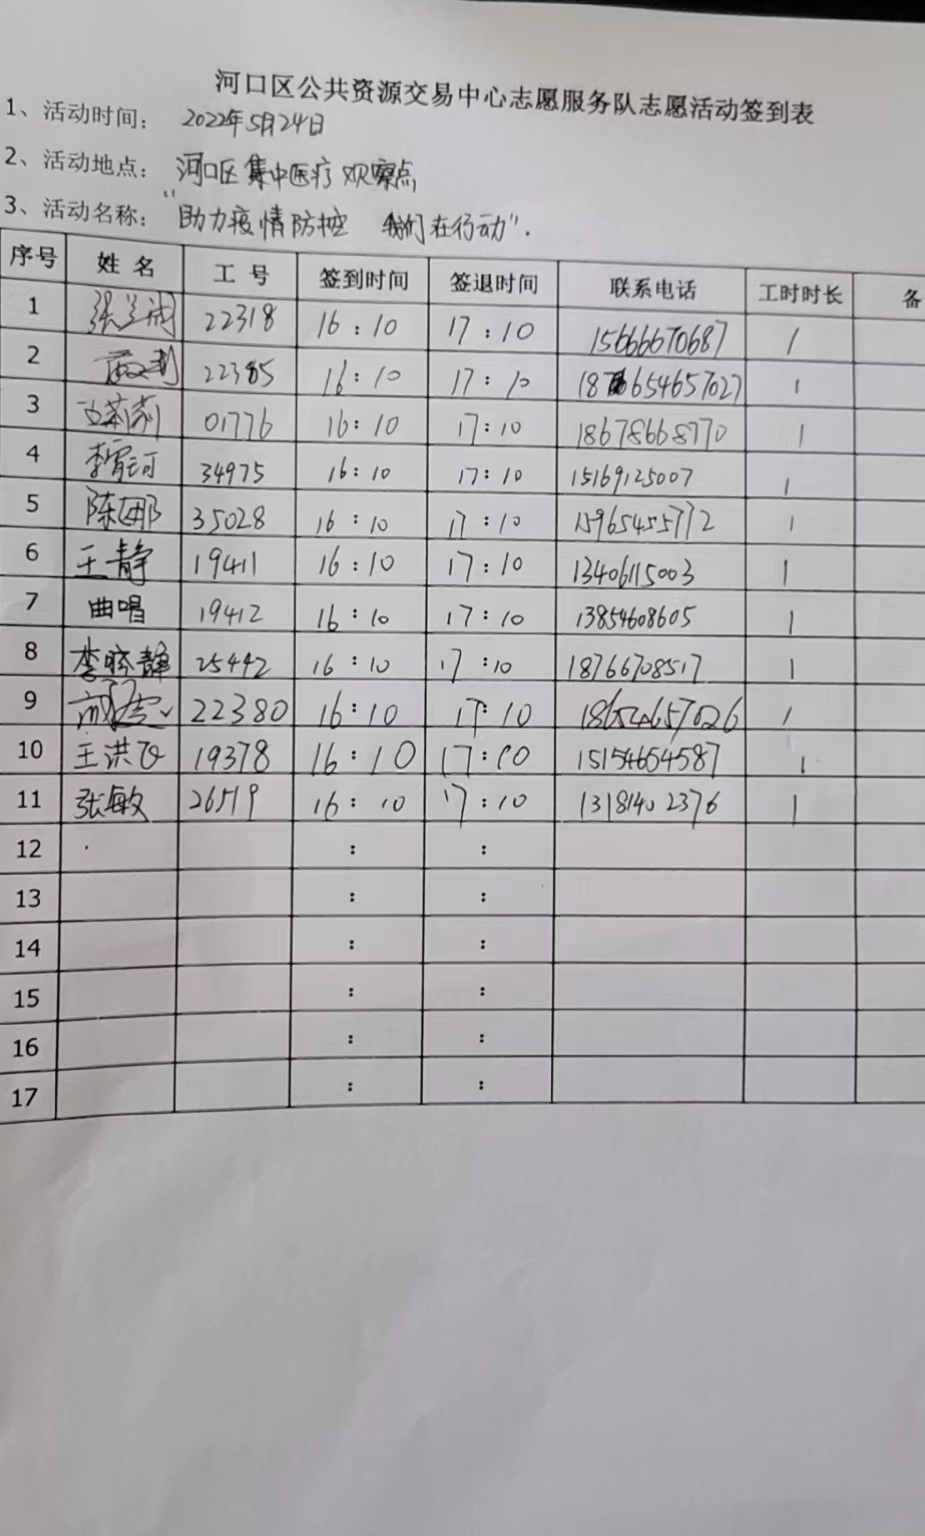 河口区公共资源交易中心志愿服务队志愿活动签到表
1、活动时间： 2022年5月24日
2、活动地点： 河口区集中医疗观察点
3、活动名称： "助力疫情防控 我们在行动".
序号 姓名 工号 签到时间 签退时间 联系电话 工时时长 备
1 22318 16:10 17:10 15666670687 1
2 22385 16:10 17:10 1
3 01776 16:10 17:10 18678668770 1
4 34975 16:10 17:10 15169125007 1
5 陈娜 35028 16:10 17:10 15965455772 1
6 王静 19411 16:10 17:10 13406115003 1
7 曲唱 19412 16:10 17:10 13854608605 1
8 李晓静 25442 16:10 17:10 18766708517 1
9 22380 16:10 17:10 18654657026 1
10 王洪飞 19378 16:10 17:10 15154654587 1
11 张敏 26519 16:10 17:10 13181402376 1
12 : :
13 : :
14 : :
15 : :
16 : :
17 : :